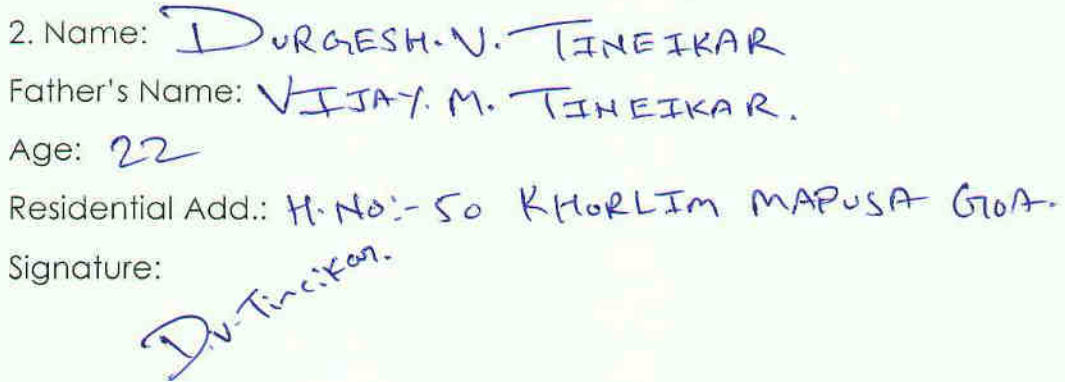 2. Name: DURGESH. V. TINEIKAR
Father's Name: VIJAY. M. TINEIKAR.
Age: 22
Residential Add.: H. No:- 50 KHORLIM MAPUSA GOA.
Signature:
D.V. Tineikar.